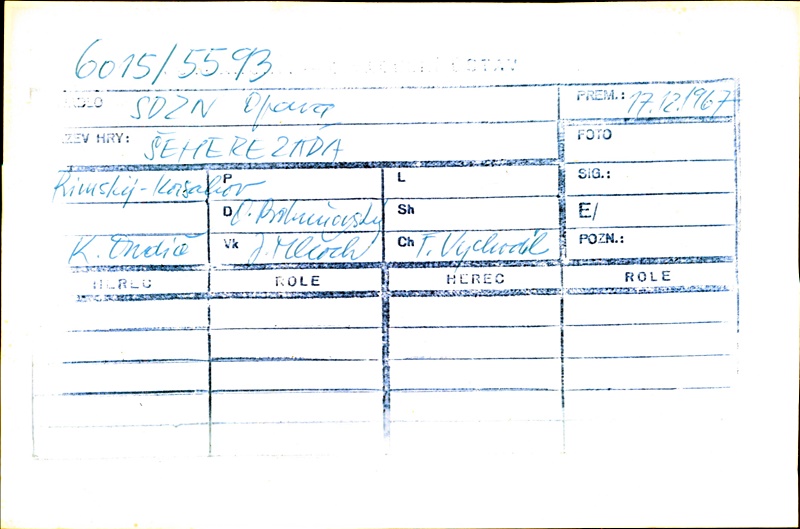 6015/5593
SDZN Opava PREM.: 17.12.1967
ZEV HRY: ŠEHEREZÁDA FOTO
Rimskij-Korsakov P L SIG.:
D Sh E/
K. Ondič Vk J. Mloch Ch T. Vychodil POZN.:
HEREC ROLE HEREC ROLE